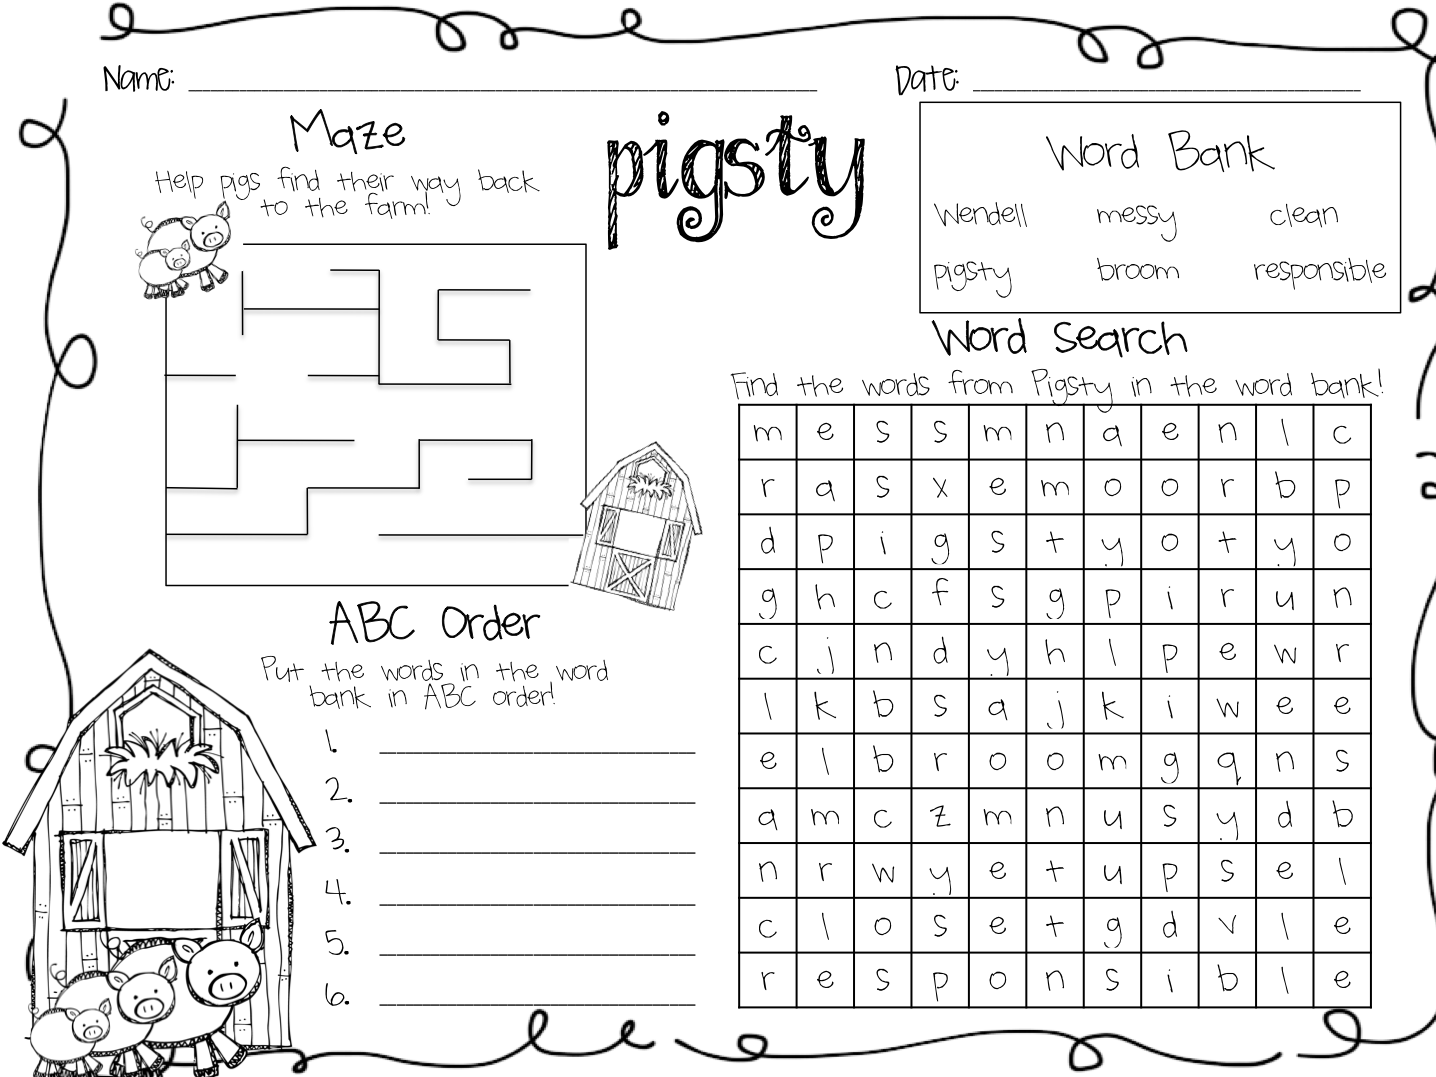 Name: Date:
Maze
Help pigs find their way back
to the farm!
pigsty
Word Bank
Wendell messy clean
pigsty broom responsible
Word Search
Find the words from Pigsty in the word bank!
m e s s m n a e n l c
r a s x e m o o r b p
d p i g s t y o t y o
g h c f s g p i r u n
c j n d y h l p e w r
l k b s a j k i w e e
e l b r o o m g q n s
a m c z m n u s y d b
n r w y e t u p s e l
c l o s e t g d v l e
r e s p o n s i b l e
ABC Order
Put the words in the word
bank in ABC order!
1.
2.
3.
4.
5.
6.